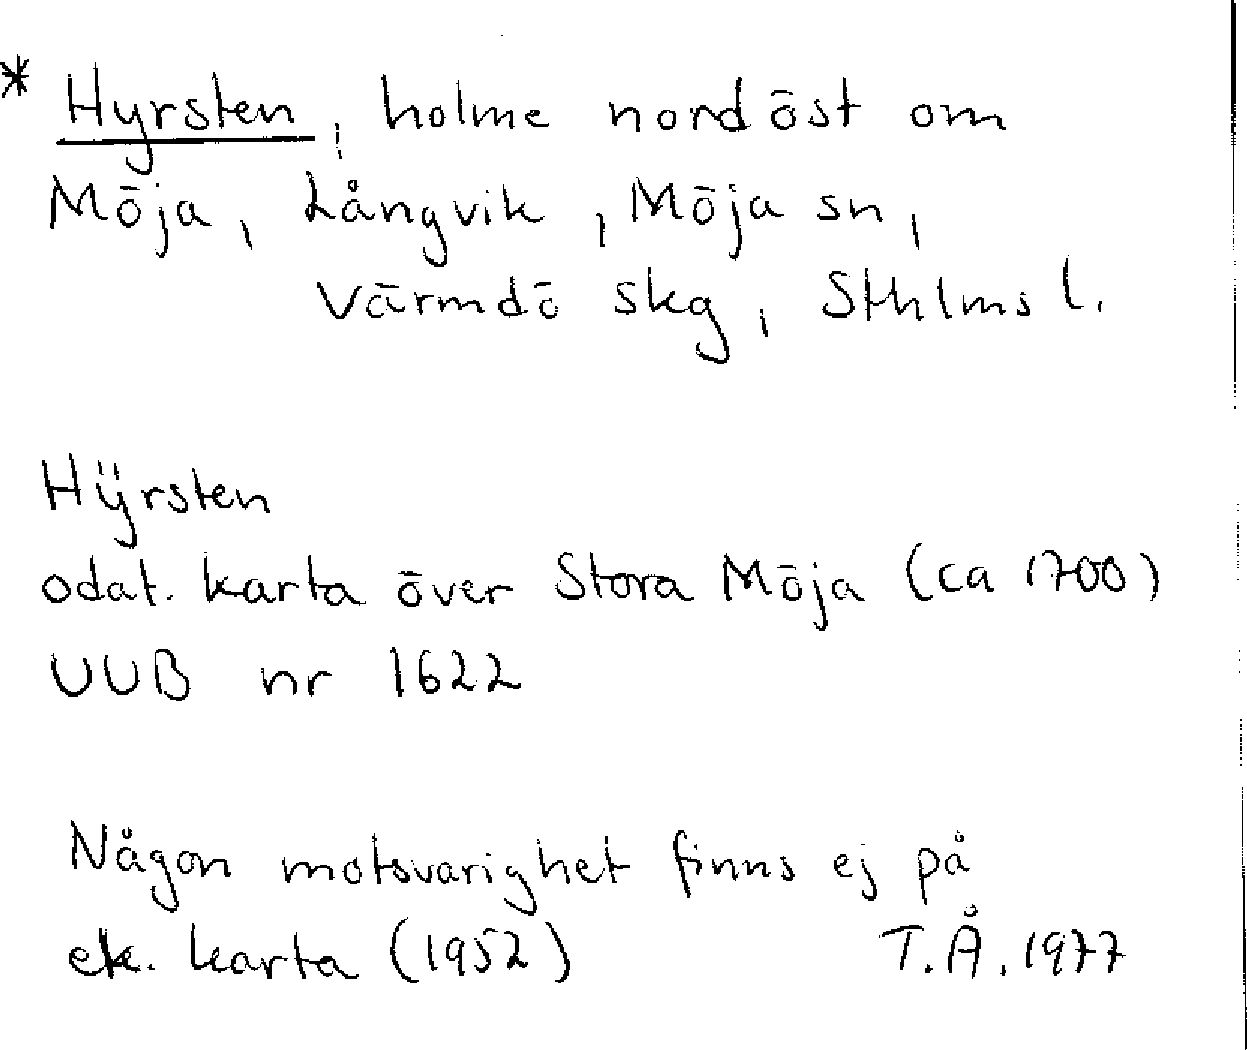 * Hyrsten, holme nordöst om
Möja, Långvik, Möja sn,
Värmdö skg, Sthlms l.
Hÿrsten
odat. karta över Stora Möja (ca 1700)
UUB nr 1622
Någon motsvarighet finns ej på
ek. karta (1952) T.Å. 1977